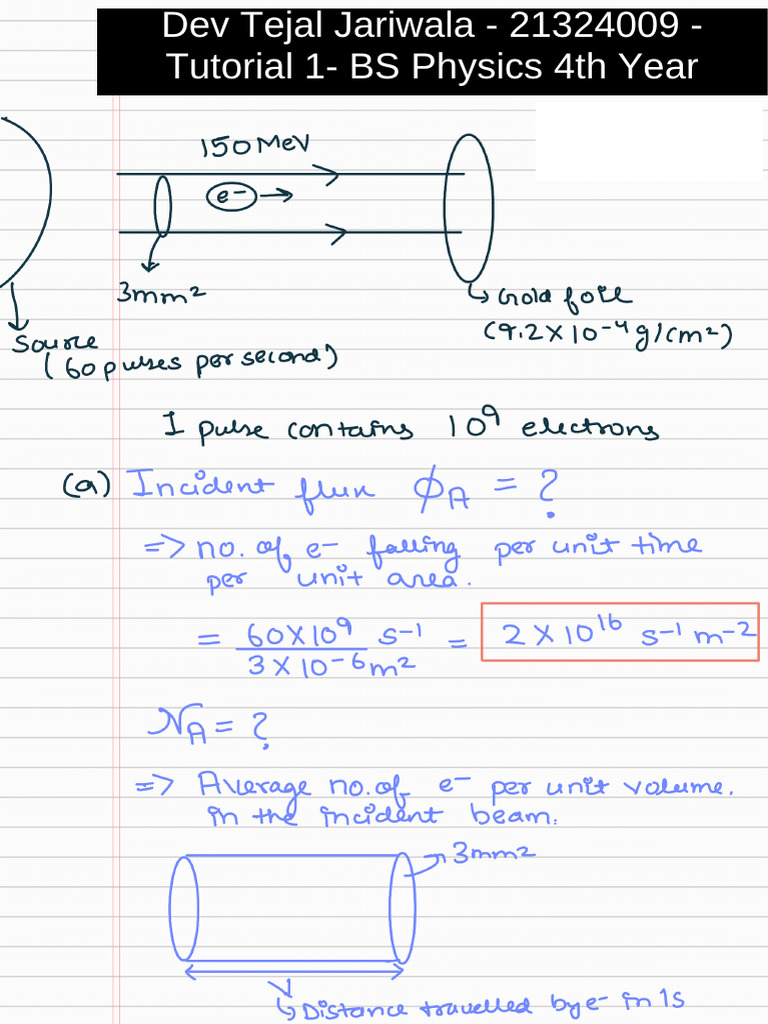 Dev Tejal Jariwala - 21324009 -
Tutorial 1- BS Physics 4th Year
150 MeV
e-
3mm²
Gold foil
(9.2X10-4g/cm²)
Source
(60 pulses per second)
1 pulse contains 10⁹ electrons
(a) Incident flux ϕA = ?
=> no. of e- falling per unit time
per unit area.
= 60X10⁹ s-1 = 2 X 10¹⁶ s-1 m-2
3 X 10-6 m²
NA = ?
=> Average no. of e- per unit volume.
in the incident beam.
3mm²
Distance travelled by e- in 1s